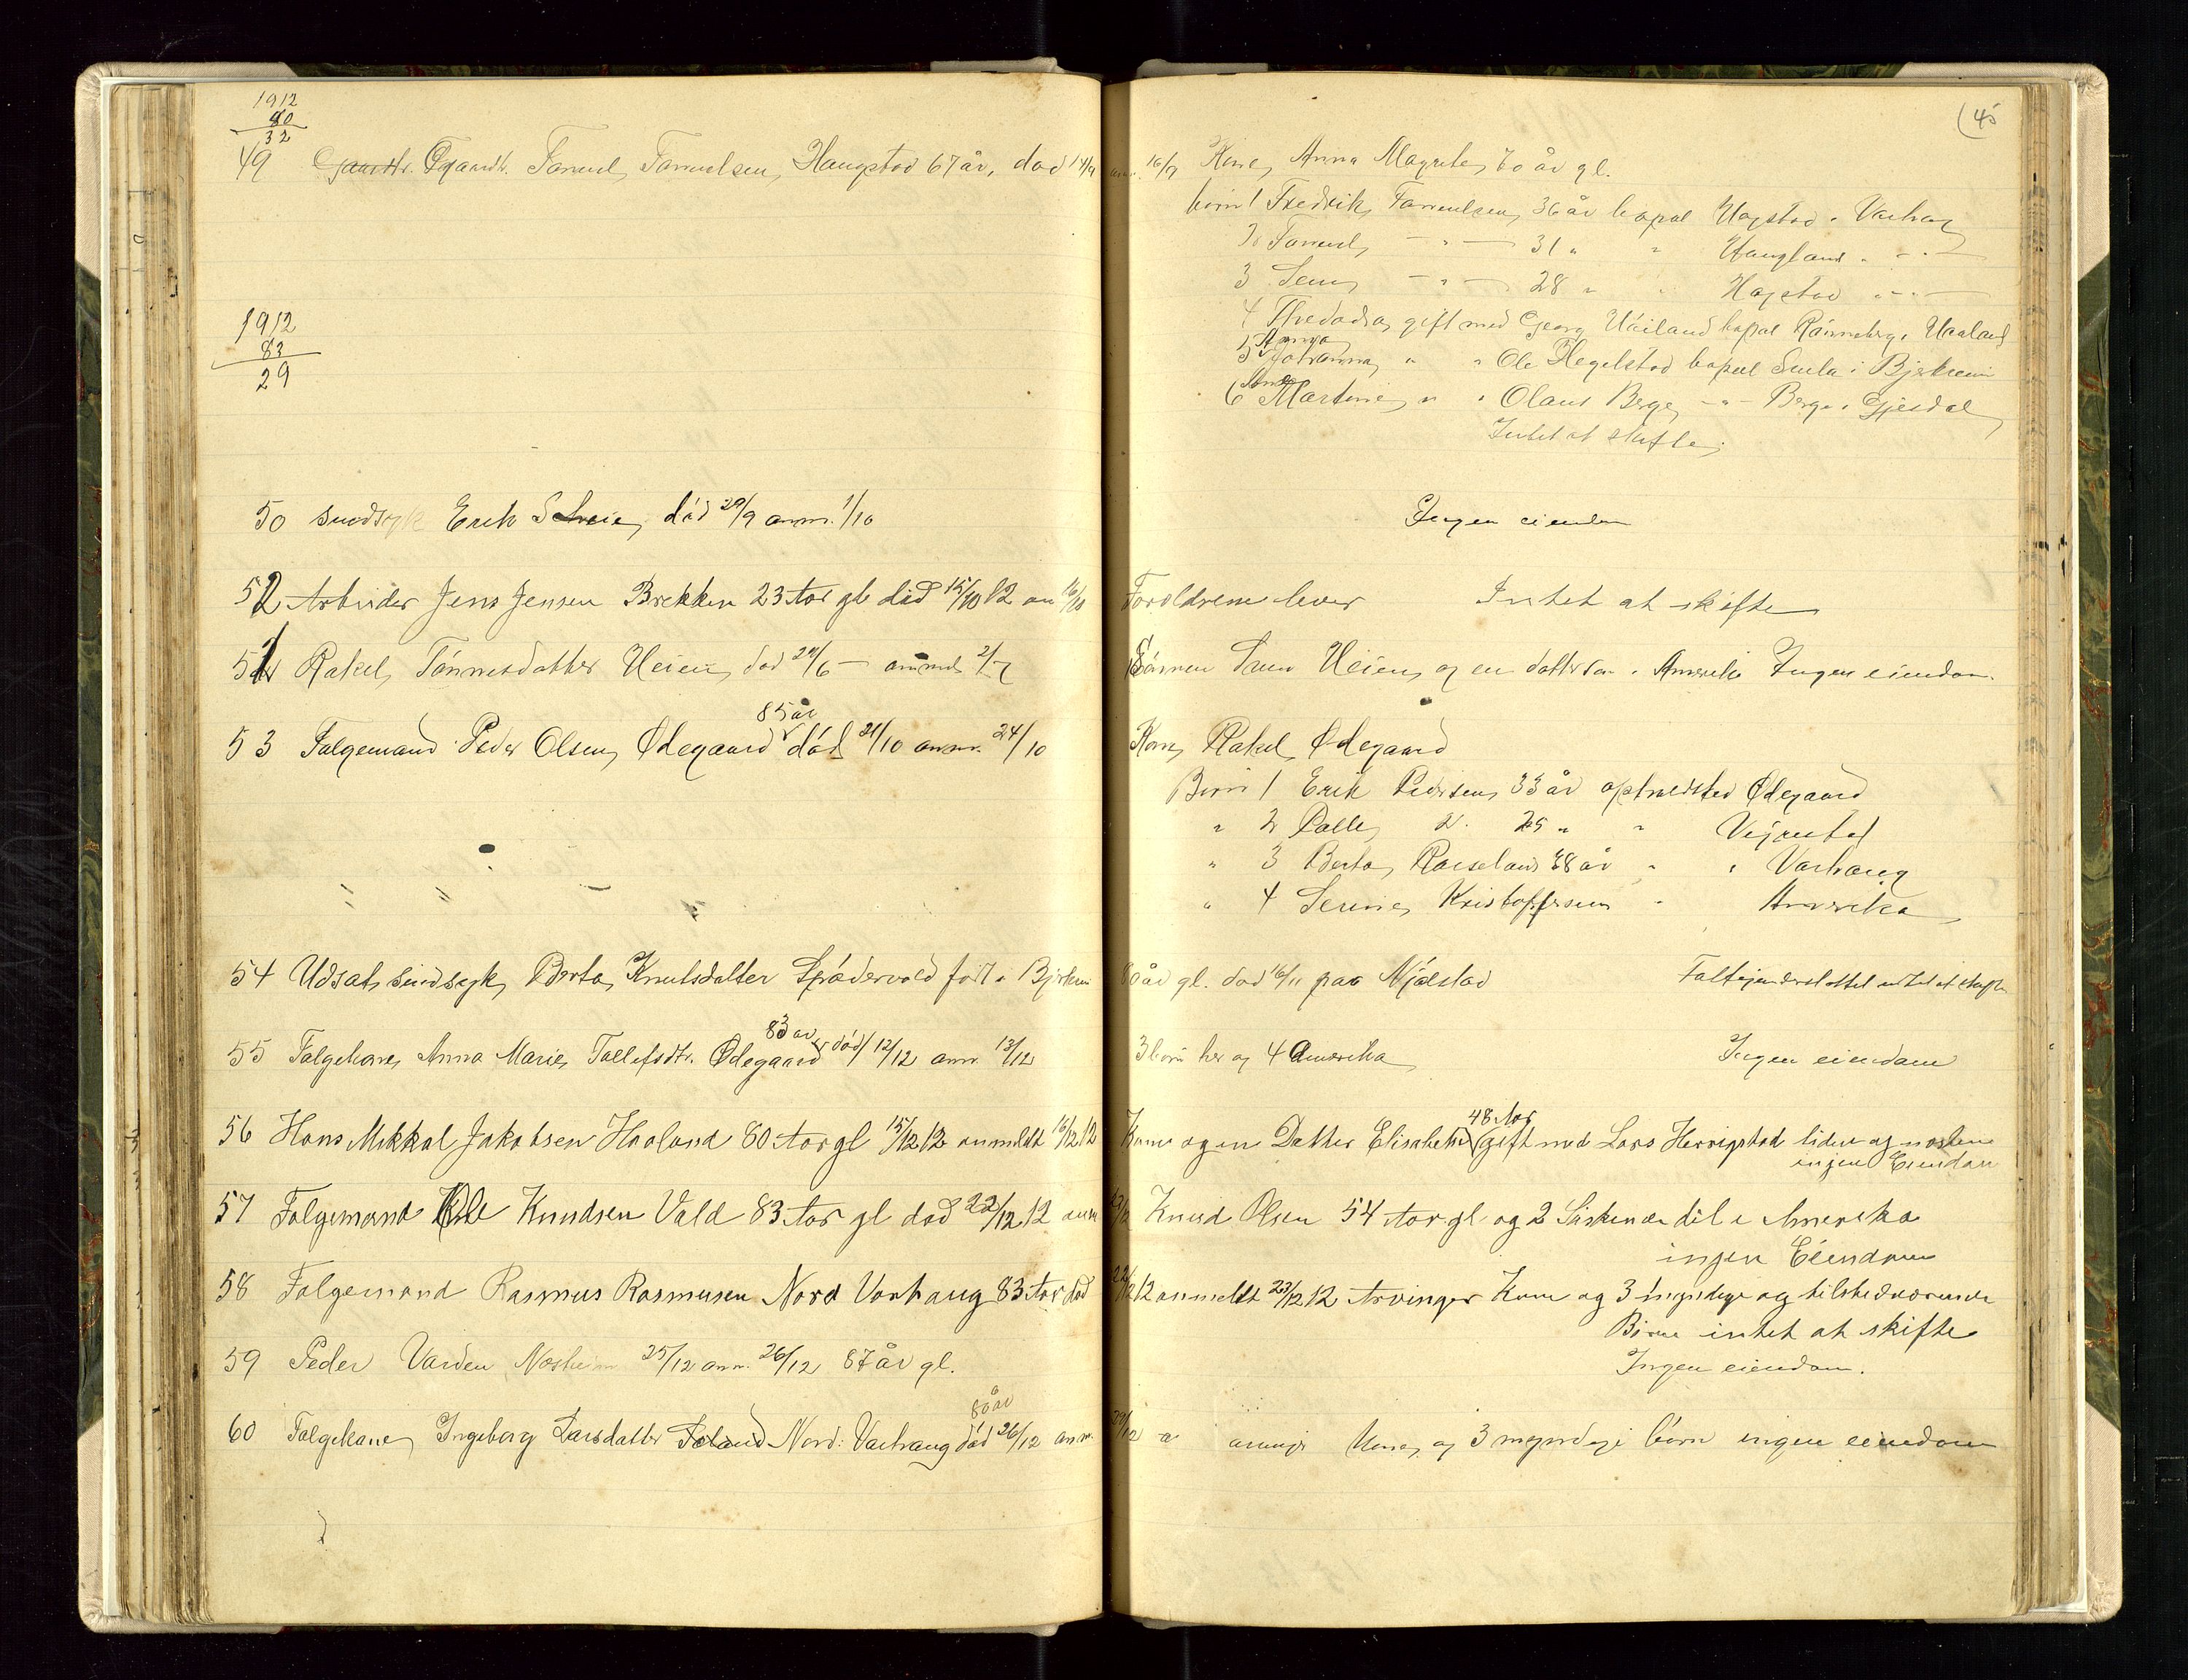 1912
80
32
49 Gaardbr. Samuel Samuelsen Haugstad 67 år, død 14/9 anm. 16/9
1912
83
29
50 sindsyk Erik død 29/9 anm. 1/10
52 Arbeider Jens Jensen Brekken 23 Aar gl død 15/10 12 an 16/10
51 Rakel Tønnesdatter Heien død 29/6 – anmel 2/7
85 år
53 Følgemand Peder Olsen Ødegaard død 21/10 anm. 24/10
54 Udsat sindsyk Berta Knutsdatter født i Bjerkrem
83 år
55 Folgekone Anna Marie Tollefsdtr. Ødegaard død 12/12 anm. 13/12
56 Hans Mikkal Jakobsen Haaland 80 Aar gl 15/12 12 anmeldt 16/12 12
57 Folgemand Ole Knudsen Vold 83 Aar gl død 22/12 12 anm
58 Folgemand Rasmus Rasmusen Nord Varhaug 83 Aar død
59 Peder Varden Nærheim 25/12 anm. 26/12 87 år gl.
80 år
60 Følgekone Ingeborg Larsdatter Nord: Varhaug død 26/12 anm.
45
Kone Anna Magrete 70 år gl.
børn 1 Fredrik Samuelsen 36 år bopæl Hogstad i Varhaug
2 Samuel – " – 31 " " Haugland " – " –
3 – " – 28 " " Hogstad " – " –
4 gift med Georg bopæl
Anna
5 Johanna " " Ole Hegelstad bopæl i Bjerkreim
6 Martine " " Olaus Berge – " – Berge i Gjesdal
Intet at skifte
Ingen eiendom
Foreldrene lever Intet at skifte
Sønnen Heien og en i Amerika Ingen eiendom.
Kone Rakel Ødegaard
Børn 1 Erik Pedersen 33 år opholdsted Ødegaard
" 2 25 " "
" 3 Berta 38 år " " Varhaug
" 4 Serine Kristoffersen " Amerika
80 år gl. død 16/11 paa Njølstad intet at skifte
3 børn her og 4 Amerika Ingen eiendom
48 Aar
Kone og en Datter Elisabeth gift med Lars Herrigstad
ingen Eiendom
Knud Olsen 54 Aar gl og 2 Søskende til i Amerika
ingen Eiendom
22/12 12 anmeldt 23/12 12 Arvinger Kone og 3 myndige og tilstedværende
Børn intet at skifte
Ingen eiendom.
29/12 og 3 myndige børn ingen eiendom